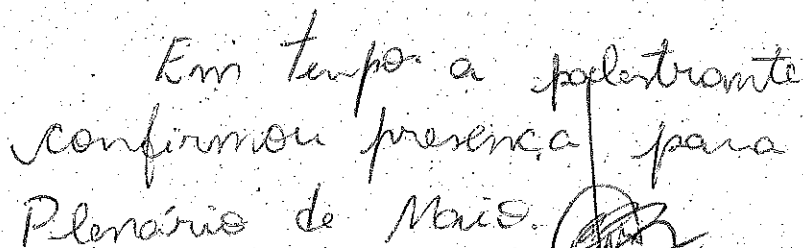 Em tempo a palestrante
confirmou presença para
Plenário de Maio.